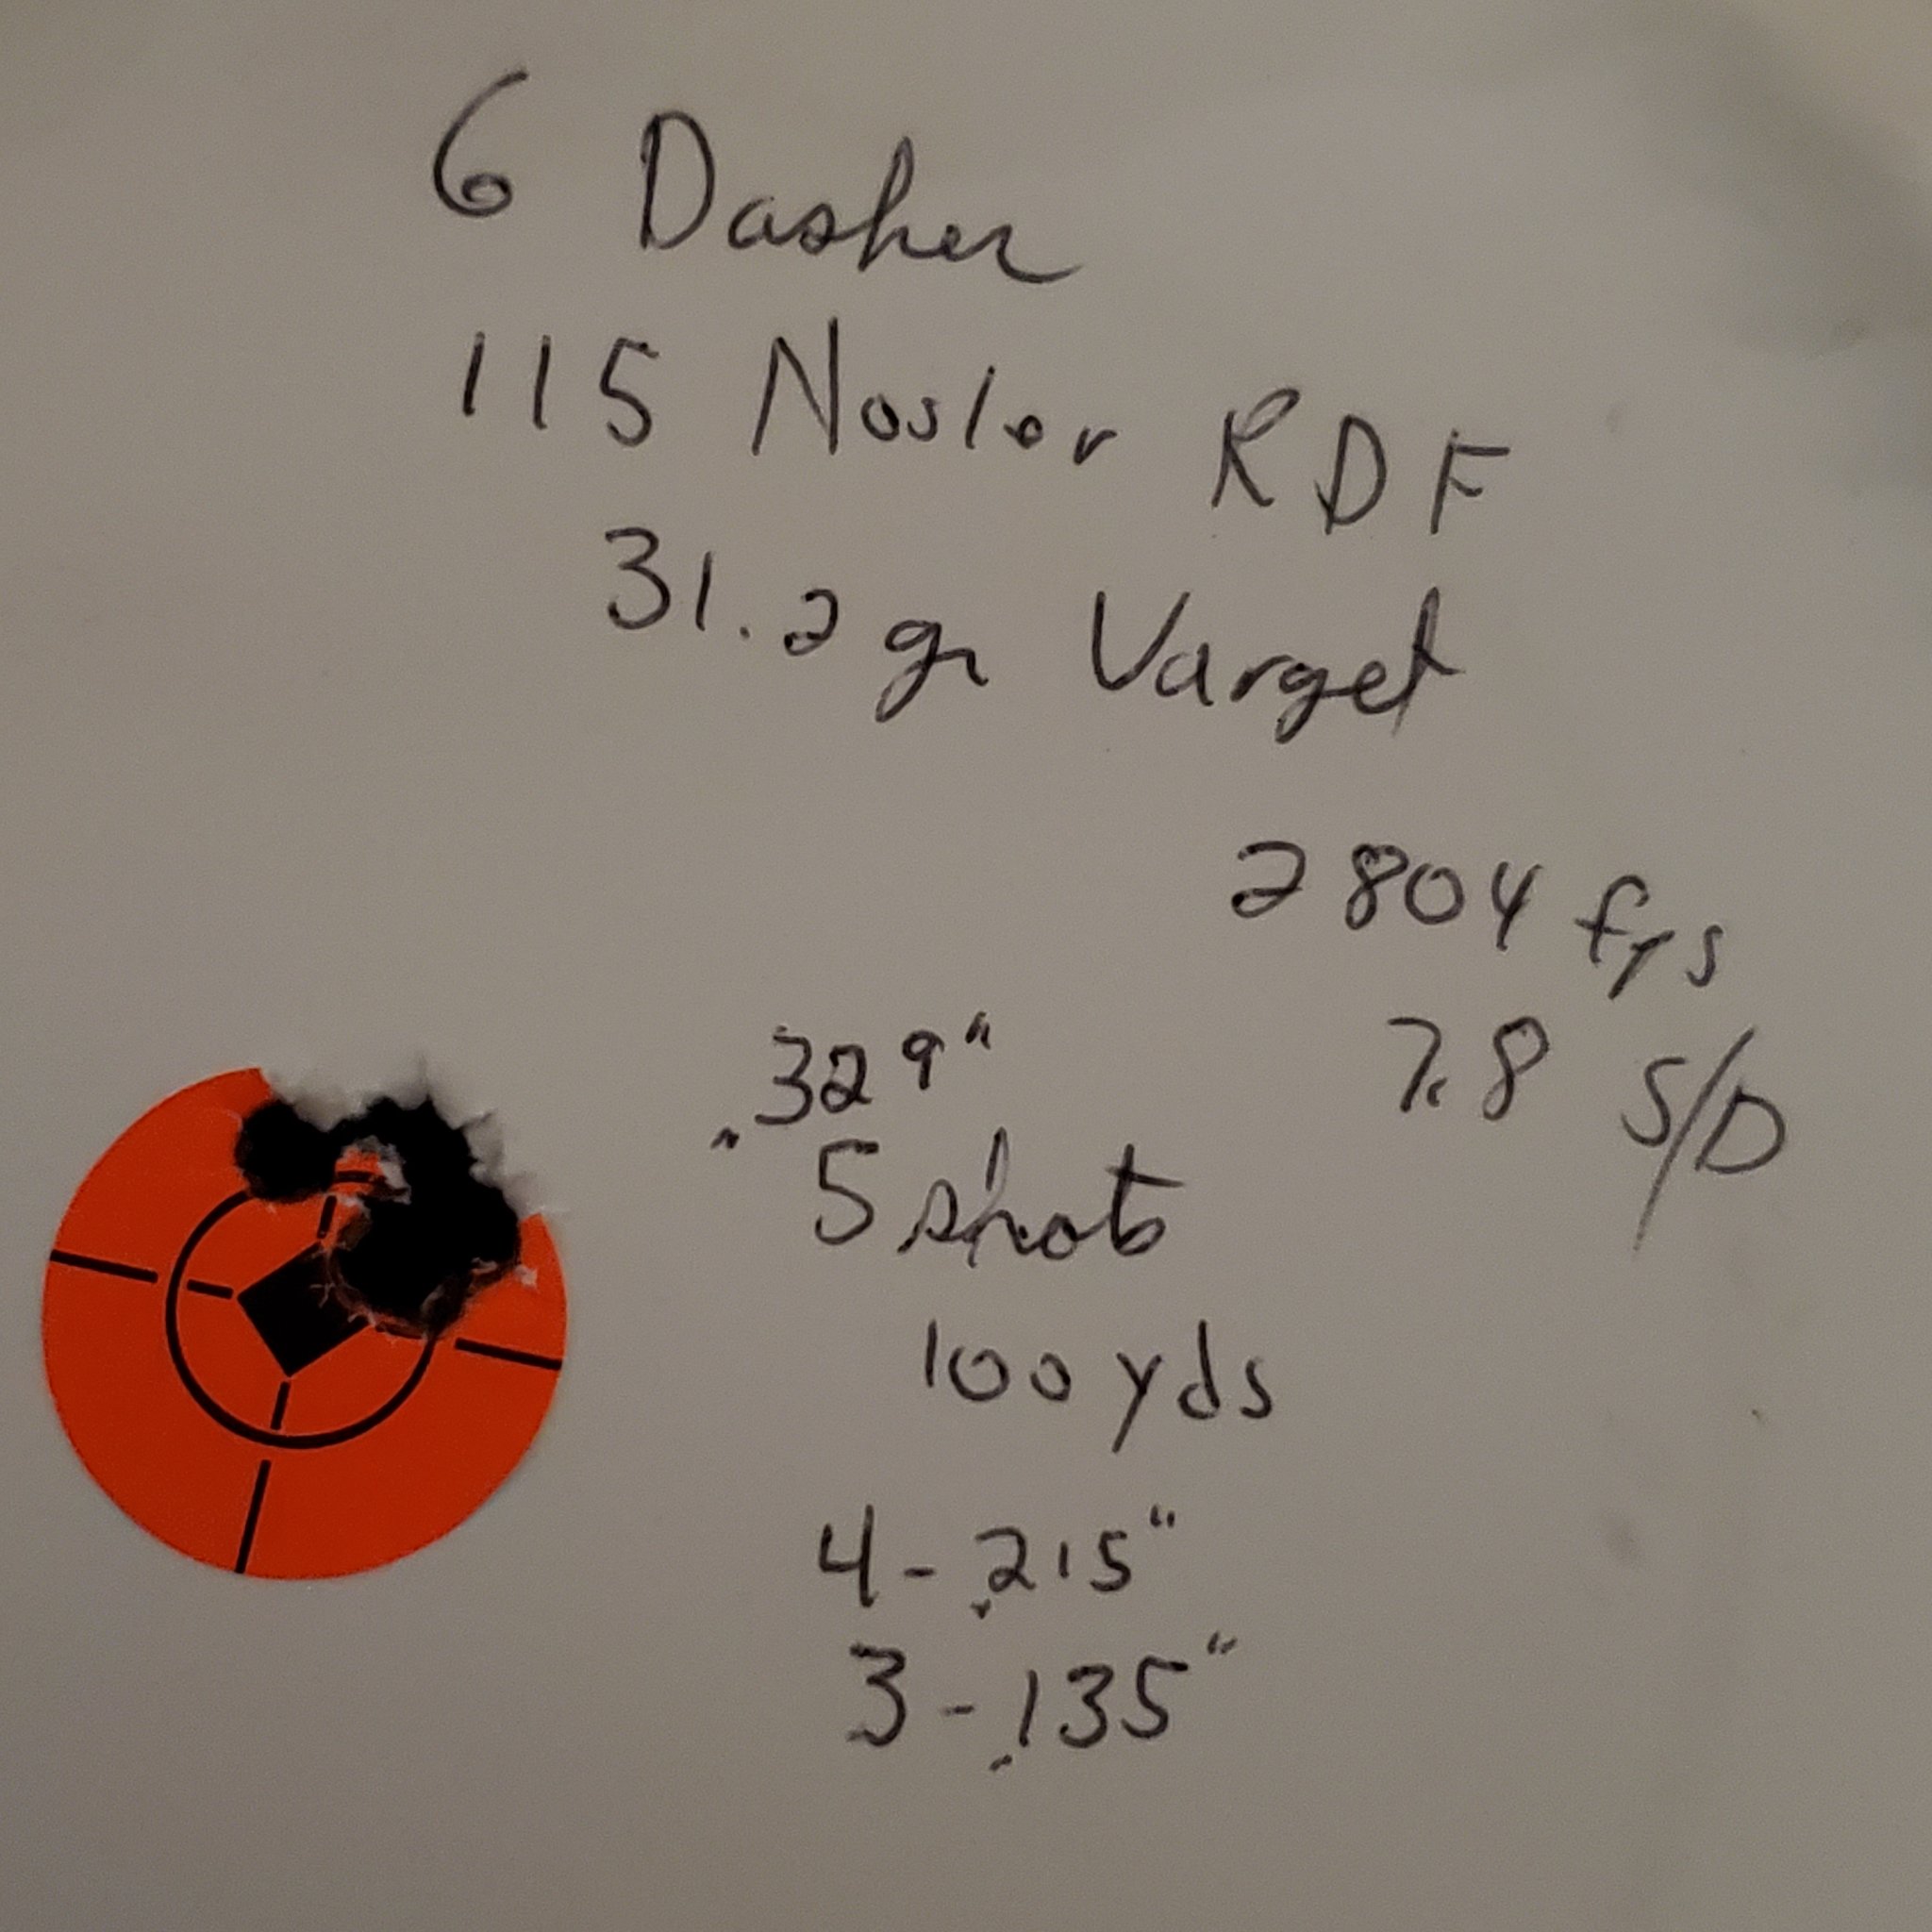 6 Dasher
115 Nosler RDF
31.2 gr Varget
2804 fps
7.8 S/D
.329"
5 shots
100 yds
4 - .215"
3 - .135"